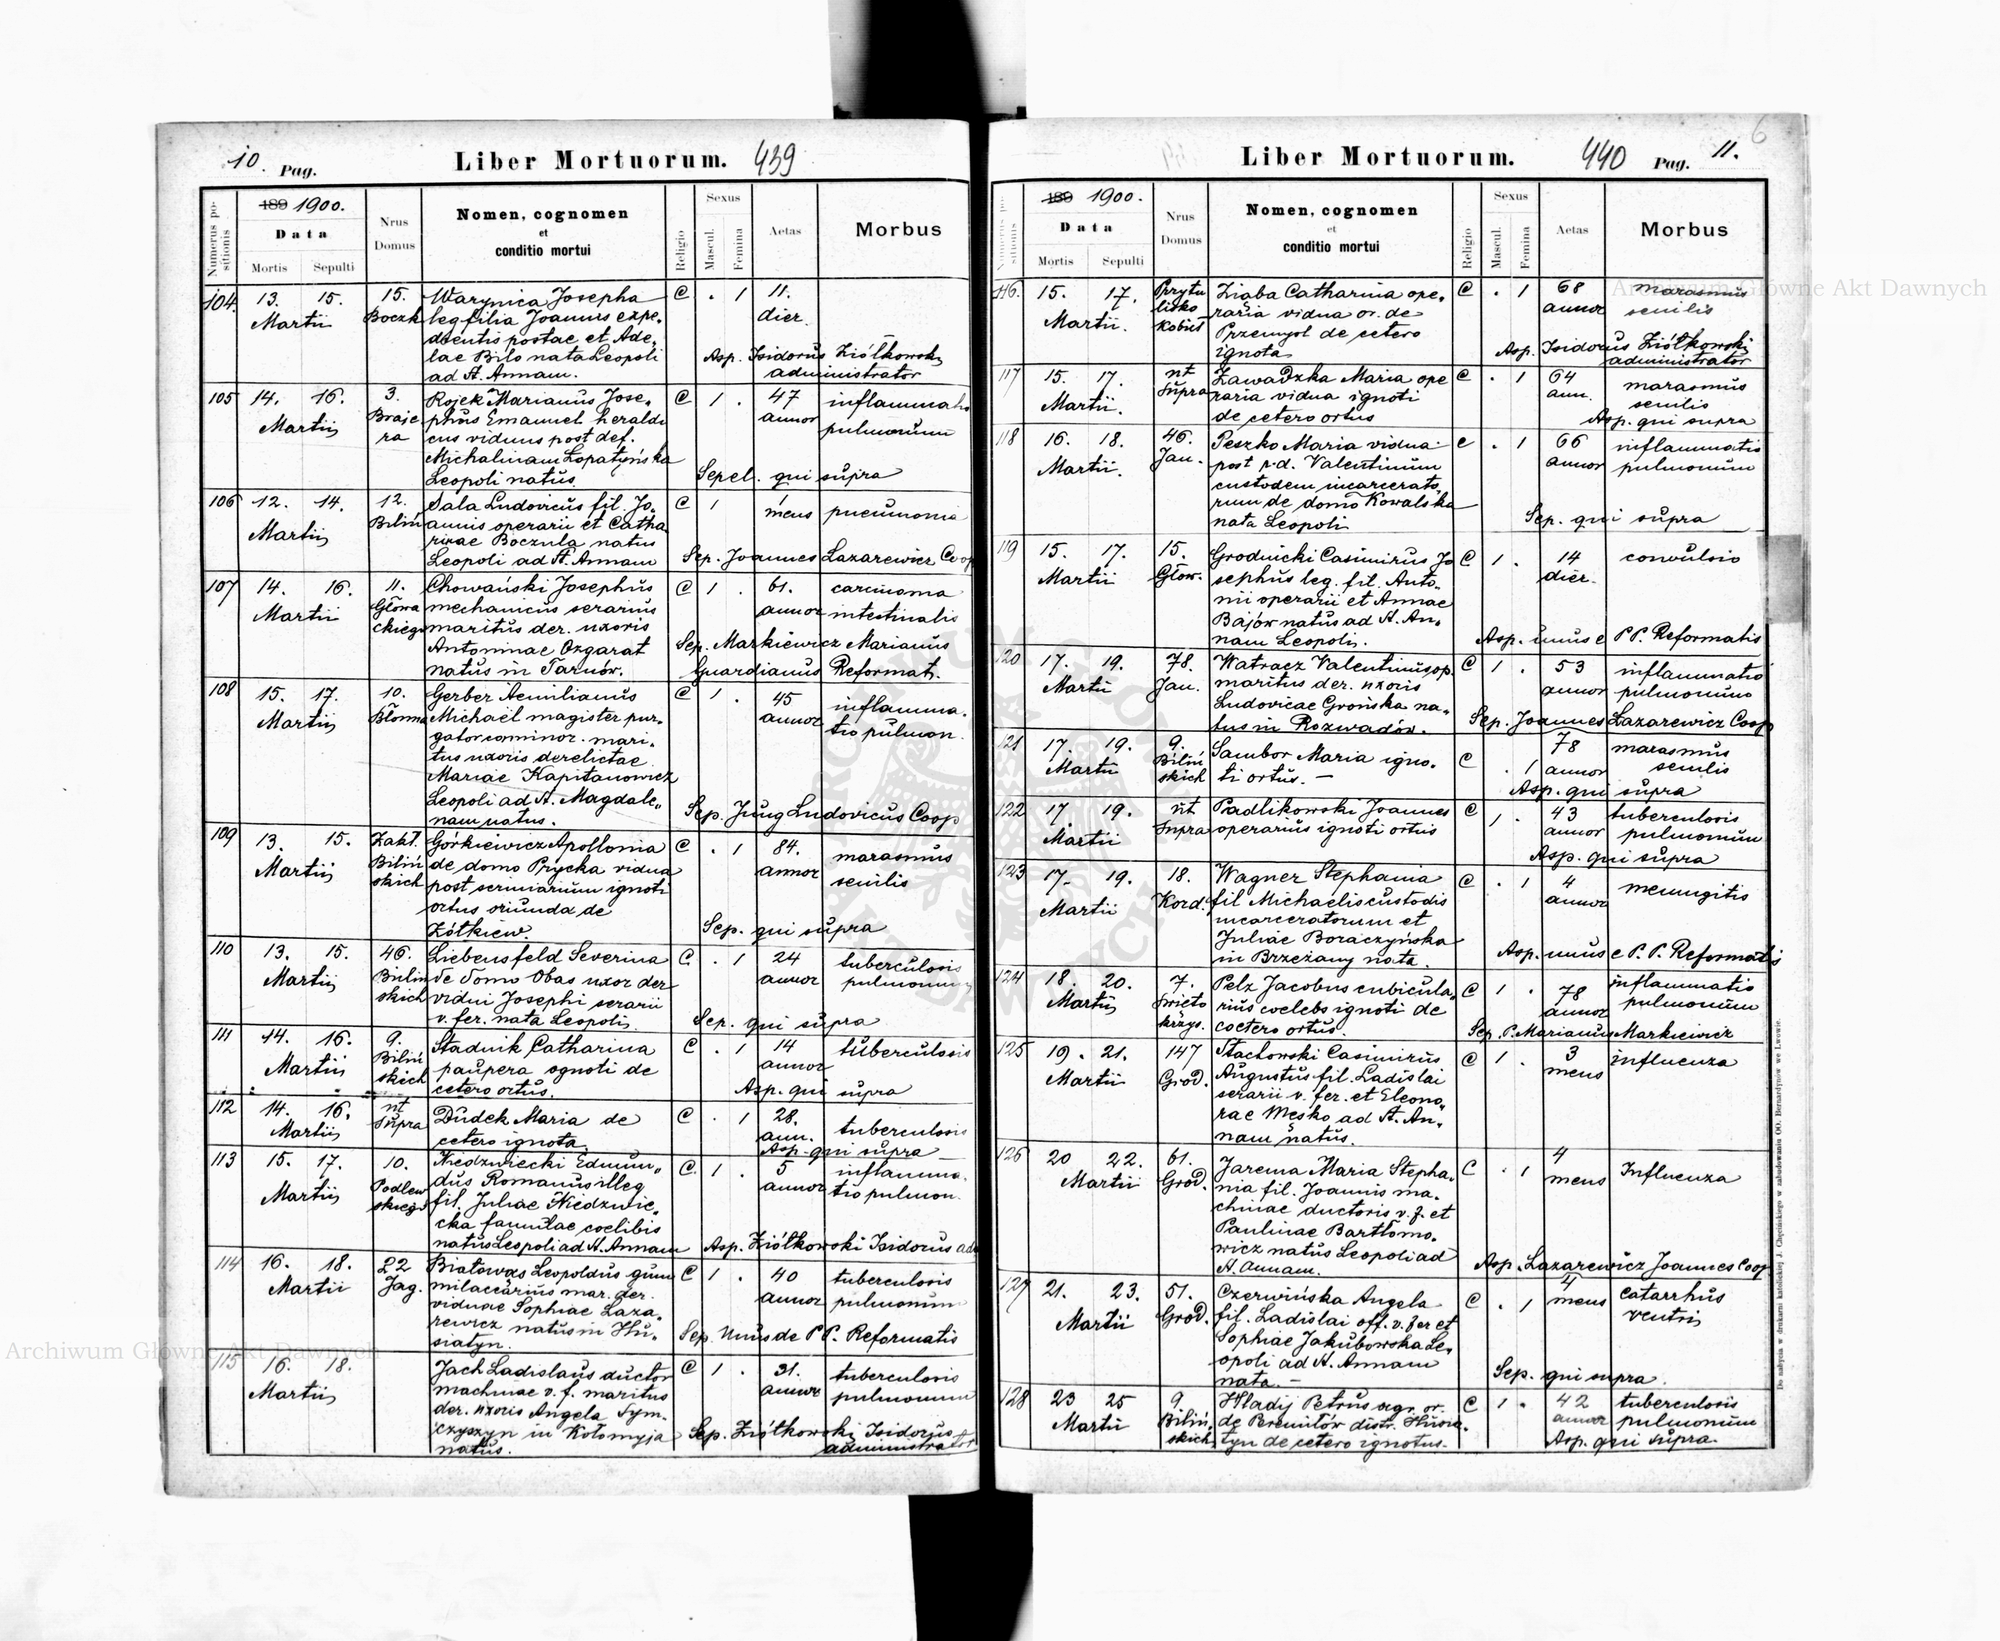 10. Pag.
Liber Mortuorum. 439
Numerus positionis
189 1900.
Data
Mortis Sepulti
Nrus Domus
Nomen, cognomen
et
conditio mortui
Religio
Sexus
Mascul. Femina
Aetas
Morbus
104. 13. 15. 15. Warynica Josepha C . 1 11.
Martii Boczk leg filia Joannis expe„ dier.
dientis postae et Ade„
lae Bilo nata Leopoli Asp. Isidorus Ziółkowski
ad St. Annam. administrator
105 14. 16. 3. Rojek Marianus Jose„ C 1 . 47 inflammatio
Martii Braje phus Emanuel heraldi annor pulmonum
ra cus viduus post def.
Michalinam Łopatyńska
Leopoli natus. Sepel. qui supra
106 12. 14. 12. Sala Ludovicus fil. Jo„ C 1 1 pneumonia
Martii Biliń annis operarii et Catha mens
rinae Boczula natus
Leopoli ad St. Annam Sep. Joannes Lazarewicz Coop
107 14. 16. 11. Chowański Josephus C 1 . 61. carcinoma
Martii Głowa mechanicus serarius annor intestinalis
ckiego maritus der. uxoris
Antoninae Ozgarat Sep. Markiewicz Marianus
natus in Tarnów. Guardianus Reformat.
108 15. 17. 10. Gerber Aemilianus C 1 . 45 inflamma„
Martii Błonna Michaël magister pur„ annor tio pulmon.
gator comminor. mari„
tus uxoris derelictae
Mariae Kapitanowicz
Leopoli ad St. Magdale„
nam natus. Sep. Jung Ludovicus Coop
109 13. 15. Zakł. Górkiewicz Apollonia C . 1 84. marasmus
Martii Biliń de domo Prycka vidua annor senilis
skich post scriniarium ignoti
ortus oriunda de
Żółkiew. Sep. qui supra
110 13. 15. 46. Liebensfeld Severina C . 1 24 tuberculosis
Martii Bilin de domo Obas uxor der annor pulmonum
skich vidui Josephi serarii
v. fer. nata Leopoli. Sep. qui supra
111 14. 16. 9. Stadnik Catharina C . 1 14 tuberculosis
Martii Biliń paupera ognoti de annor
skich cetero ortus. Asp. qui supra
112 14. 16. ut Dudek Maria de C . 1 28. tuberculosis
Martii supra cetero ignota ann.
Asp. qui supra
113 15. 17. 10. Niedzwiecki Edmun„ C. 1 . 5 inflamma„
Martii Podlew dus Romanus illeg annor tio pulmon.
skiego fil. Juliae Niedzwie„
cka famulae coelibis
natus Leopoli ad St. Annam Asp. Ziółkowski Isidorus ad
114 16. 18. 22 Białowąs Leopoldus gum C 1 . 40 tuberculosis
Martii Jag. milaccarius mar. der. annor pulmonum
viduae Sophiae Laza„
rewicz natus in Hu„ Sep. Unus de P P. Reformatis
siatyn.
115 16. 18. Jach Ladislaus ductor C 1 . 31. tuberculosis
Martii machinae v. f. maritus annor pulmonum
der. uxoris Angela Sym„
czyszyn in Kołomyja Sep. Ziółkowski Isidorus
natus. administrator
Liber Mortuorum. 440 Pag. 11.
6
Numerus positionis
189 1900.
Data
Mortis Sepulti
Nrus Domus
Nomen, cognomen
et
conditio mortui
Religio
Sexus
Mascul. Femina
Aetas
Morbus
116. 15. 17. Przytu Ziaba Catharina ope„ C . 1 68 marasmus
Martii. lisko raria vidua or. de annor senilis
kobiet Przemysl de cetero
ignota Asp. Isidorus Ziółkowski
administrator
117 15. 17. ut Zawadzka Maria ope C . 1 64 marasmus
Martii. supra raria vidua ignoti ann. senilis
de cetero ortus Asp. qui supra
118 16. 18. 46. Peszko Maria vidua C . 1 66 inflammatio
Martii. Jan. post p.d. Valentinum annor pulmonum
custodem incarcerato„
rum de domo Kowalska
nata Leopoli Sep. qui supra
119 15. 17. 15. Grodnicki Casimirus Jo C 1 . 14 convulsio
Martii Głow. sephus leg. fil. Anto„ dier.
nii operarii et Annae
Bajór natus ad St. An„
nam Leopoli. Asp. unus e P P. Reformatis
120 17. 19. 78. Watracz Valentinus op. C 1 . 53 inflammatio
Martii Jan. maritus der. uxoris annor pulmonum
Ludovicae Grońska na„
tus in Rozwadów. Sep. Joannes Lazarewicz Coop
121 17. 19. 9. Sambor Maria igno„ C . 1 78 marasmus
Martii Biliń ti ortus. annor senilis
skich Asp. qui supra
122 17. 19. ut Padlikowski Joannes C 1 . 43 tuberculosis
Martii supra operarius ignoti ortus annor pulmonum
Asp. qui supra
123 17. 19. 18. Wagner Stephania C . 1 4 meningitis
Martii Kord. fil Michaelis custodis annor
incarceratorum et
Juliae Boraczyńska
in Brzeżany nata. Asp. unus e P. P. Reformatis
124 18. 20. 7. Pelz Jacobus cubicula„ C 1 . 78 inflammatio
Martii Swięto rius coelebs ignoti de annor pulmonum
krzys. coetero ortus. Sep. P. Marianus Markiewicz
125 19. 21. 147 Stachowski Casimirus C 1 . 3 influenza
Martii Grod. Augustus fil. Ladislai mens
serarii v. fer. et Eleono„
rae Mesko ad St. An„
nam natus.
126 20 22. 61. Jarema Maria Stepha„ C . 1 4 Influenza
Martii Grod. nia fil. Joannis ma„ mens
chinae ductoris v. f. et
Paulinae Bartłomo„
wicz natus Leopoli ad
St. Annam. Asp. Lazarewicz Joannes Coop
127 21. 23. 51. Czerwińska Angela C . 1 4 catarrhus
Martii Grod. fil. Ladislai off. v. fer et mens ventris
Sophiae Jakubowska Le„
opoli ad St. Annam
nata. Sep. qui supra.
128 23 25 9. Hladij Petrus agr. or. C 1 . 42 tuberculosis
Martii Biliń de Peremilów distr. Husia„ annor pulmonum
skich tyn de cetero ignotus. Asp. qui supra.
Do nabycia w drukarni katolickiej J. Chęcińskiego w zabudowaniu OO. Bernardynów we Lwowie.
Archiwum Główne Akt Dawnych
Archiwum Główne Akt Dawnych